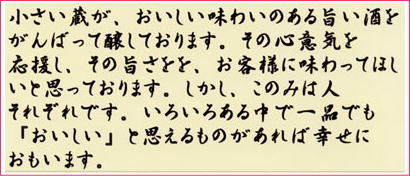 小さい蔵が、おいしい味わいのある旨い酒を
がんばって醸しております。その心意気を
応援し、その旨さをを、お客様に味わってほし
いと思っております。しかし、このみは人
それぞれです。いろいろある中で一品でも
『おいしい』と思えるものがあれば幸せに
おもいます。